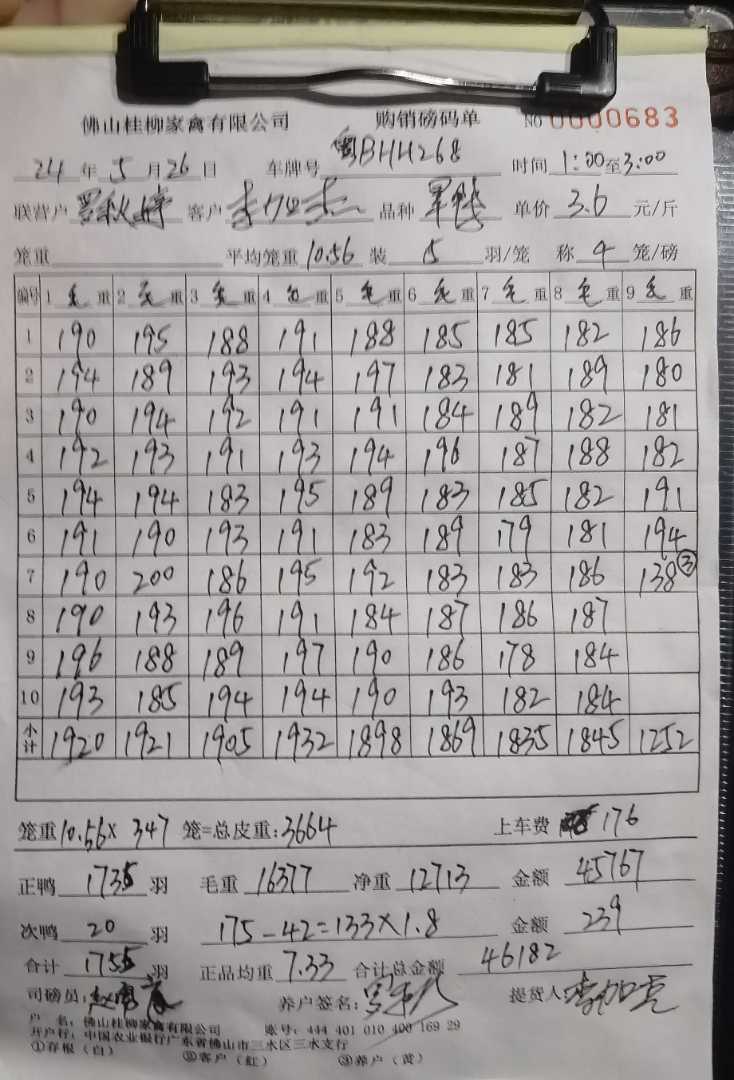 佛山桂柳家禽有限公司 购销磅码单 No 0000683
24 年 5 月 26 日 车牌号 粤BHH268 时间 1:00 至 3:00
联营户 罗秋婷 客户 李加杰 品种 单价 3.6 元/斤
笼重 平均笼重 10.56 装 5 羽/笼 称 4 笼/磅
编号 1 毛 重 2 毛 重 3 毛 重 4 毛 重 5 毛 重 6 毛 重 7 毛 重 8 毛 重 9 毛 重
1 190 195 188 191 188 185 185 182 186
2 194 189 193 194 197 183 181 189 180
3 190 194 192 191 191 184 189 182 181
4 192 193 191 193 194 196 187 188 182
5 194 194 183 195 189 183 185 182 191
6 191 190 193 191 183 189 179 181 194
7 190 200 186 195 192 183 183 186 138 ③
8 190 193 196 191 184 187 186 187
9 196 188 189 197 190 186 178 184
10 193 185 194 194 190 193 182 184
小计 1920 1921 1905 1932 1898 1869 1835 1845 1252
笼重 10.56 × 347 笼=总皮重: 3664 上车费 176
正鸭 1735 羽 毛重 16377 净重 12713 金额 45767
次鸭 20 羽 175-42=133×1.8 金额 239
合计 1755 羽 正品均重 7.33 合计总金额 46182
司磅员: 养户签名: 提货人
户 名: 佛山桂柳家禽有限公司 账号: 444 401 010 400 169 29
开户行: 中国农业银行广东省佛山市三水区三水支行
①存根（白） ②客户（红） ③养户（黄）